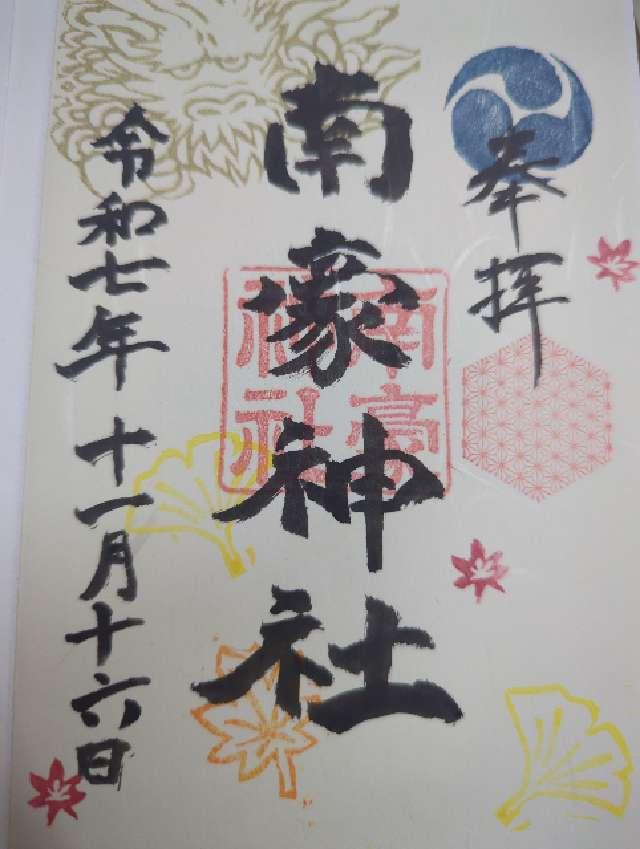 奉拝
南豪神社
南豪神社
令和七年十一月十六日